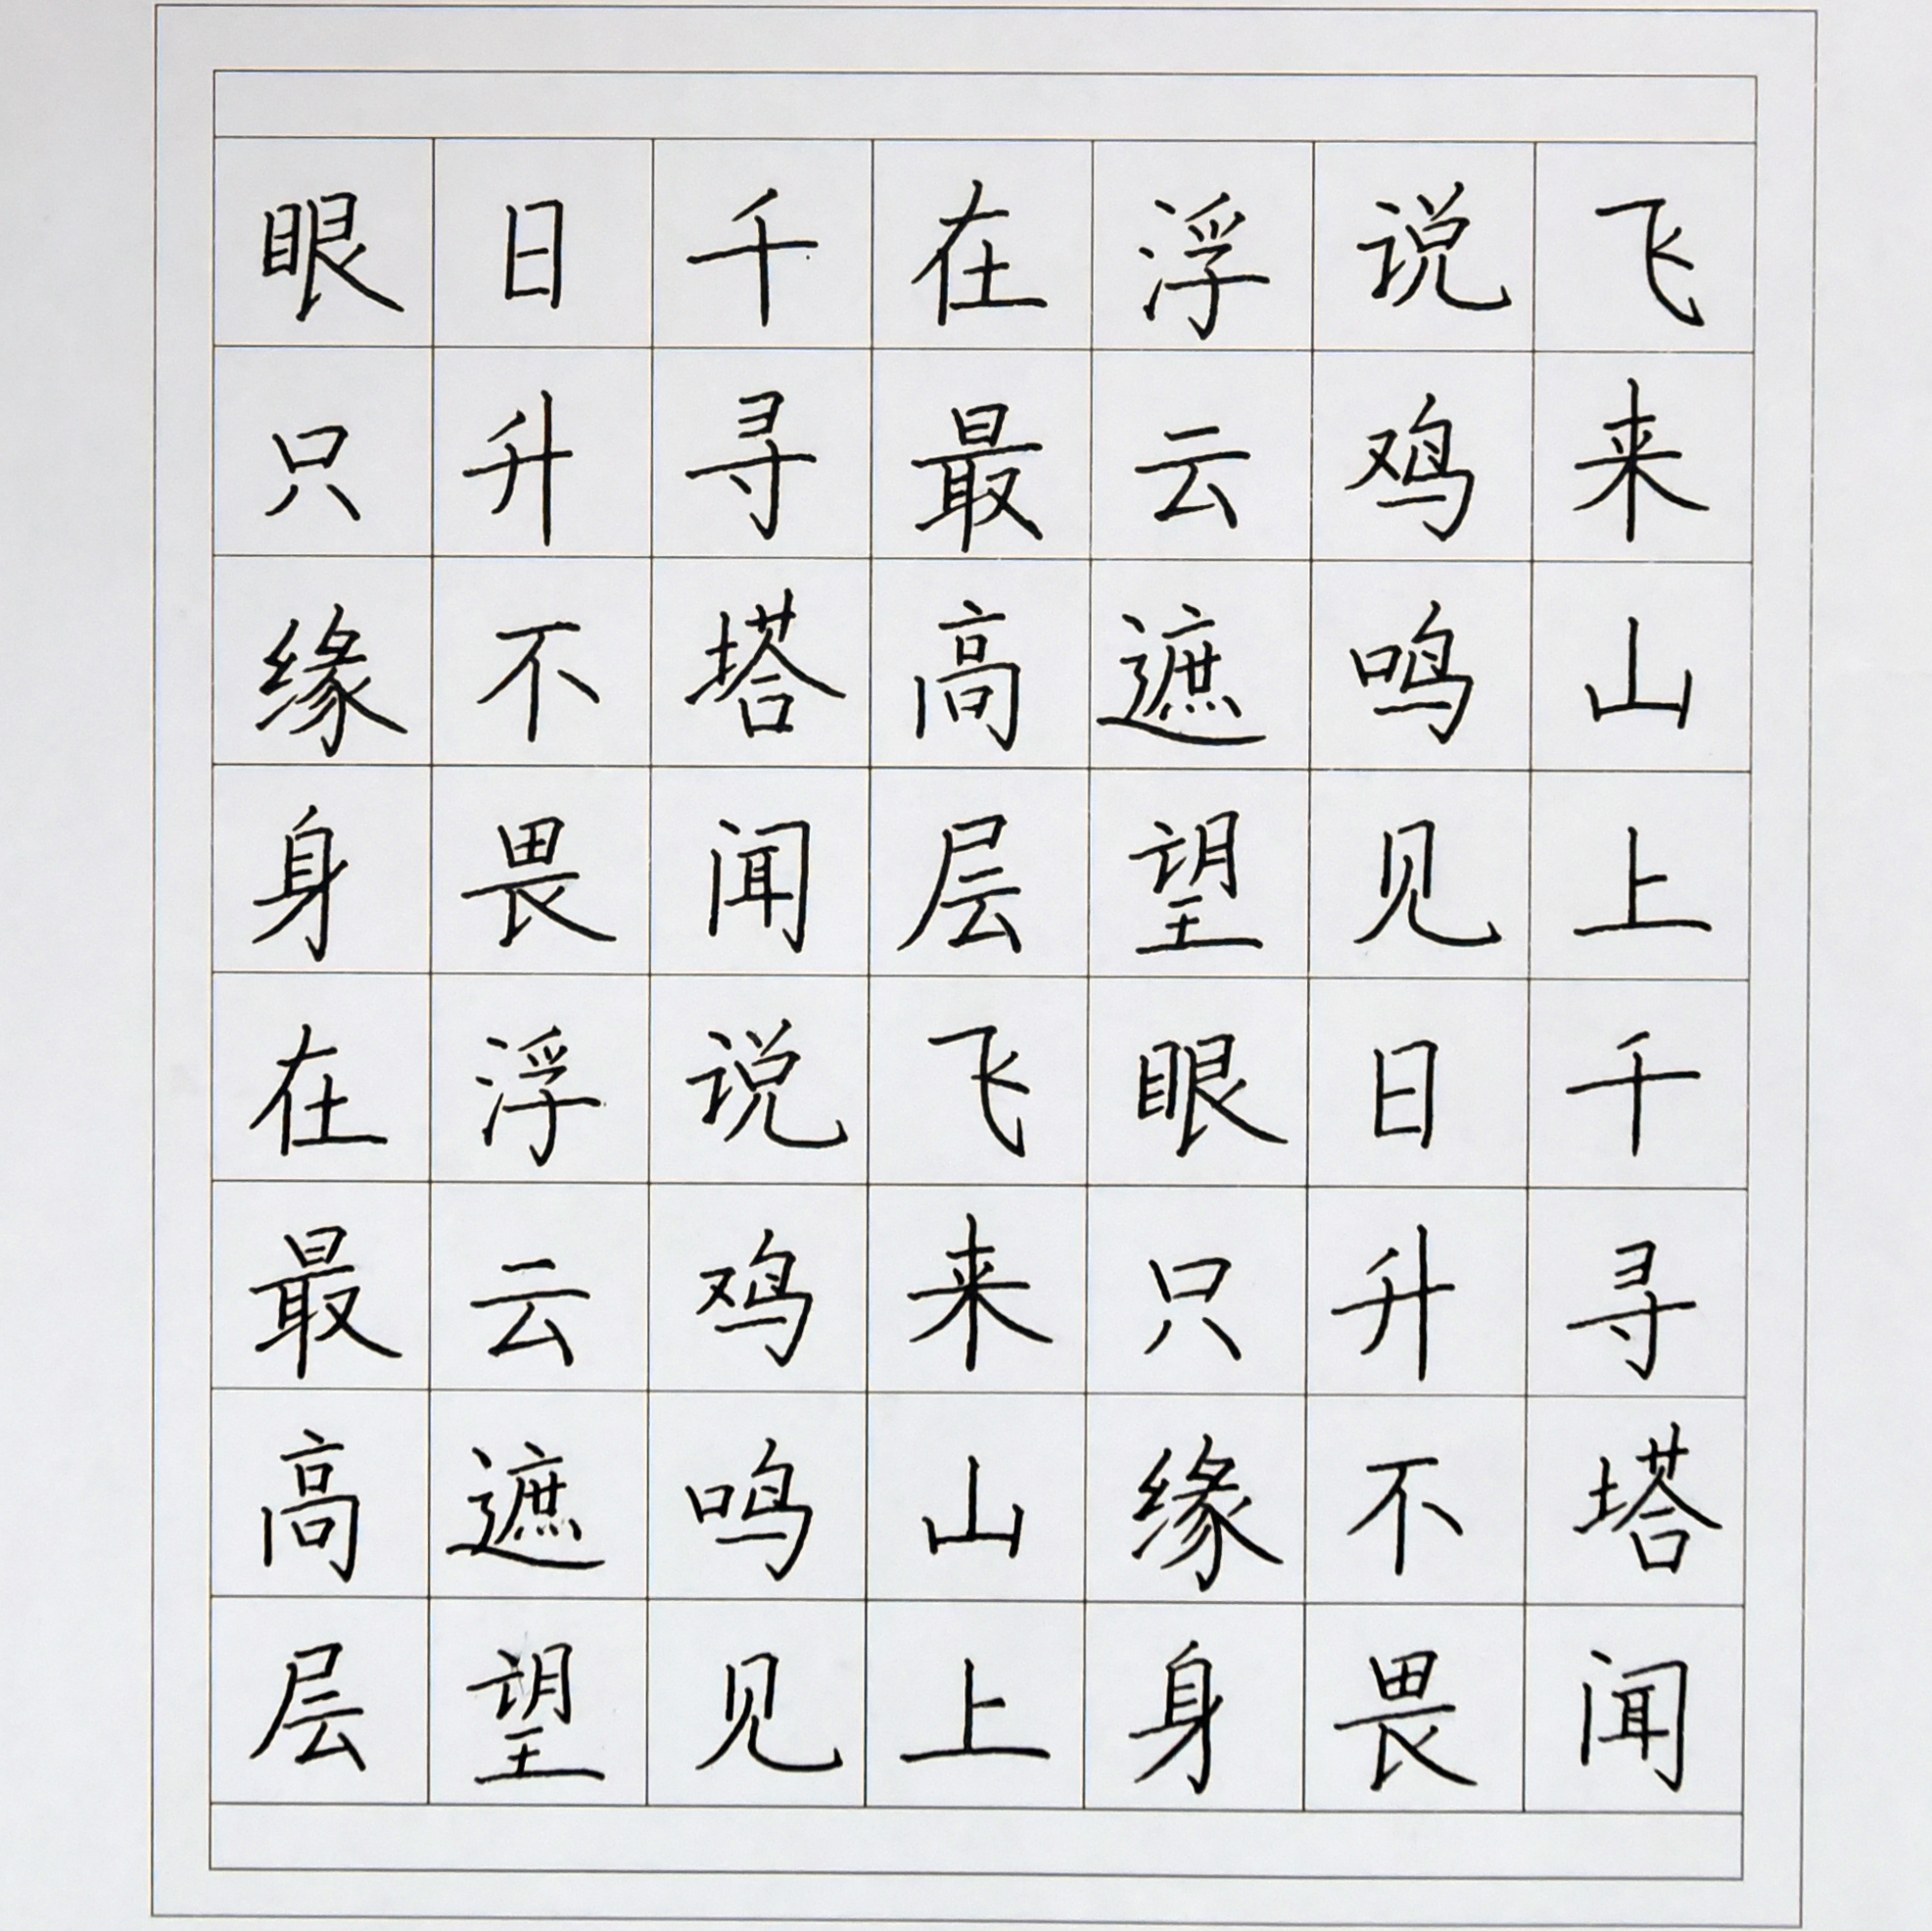 飞来山上千寻塔闻
说鸡鸣见日升不畏
浮云遮望眼只缘身
在最高层飞来山上
千寻塔闻说鸡鸣见
日升不畏浮云遮望
眼只缘身在最高层